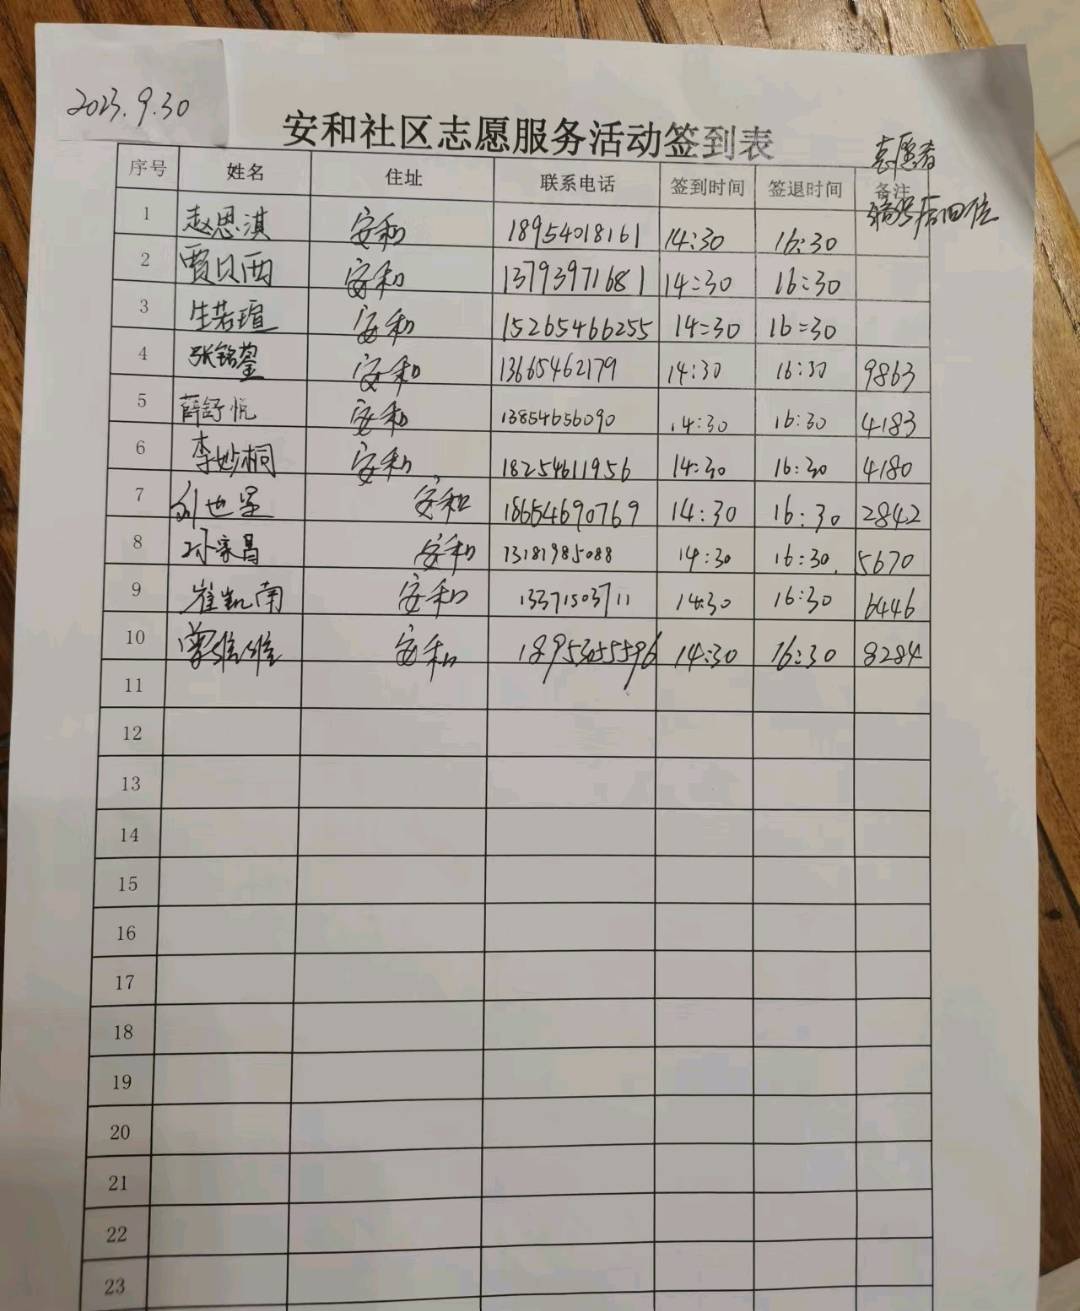 2023.9.30
安和社区志愿服务活动签到表
志愿者
编号后四位
序号 姓名 住址 联系电话 签到时间 签退时间 备注
1 赵思淇 安和 18954018161 14:30 16:30
2 贾贝西 安和 13793971681 14:30 16:30
3 生若瑄 安和 15265466255 14:30 16:30
4 张铭蓥 安和 13665462179 14:30 16:30 9863
5 薛舒悦 安和 13854656090 14:30 16:30 4183
6 李妙桐 安和 18254611956 14:30 16:30 4180
7 刘世 安和 18654690769 14:30 16:30 2842
8 孙家昌 安和 13181985088 14:30 16:30 5670
9 崔凯南 安和 13371503711 14:30 16:30 6446
10 曾维维 安和 14:30 16:30 8284
11
12
13
14
15
16
17
18
19
20
21
22
23